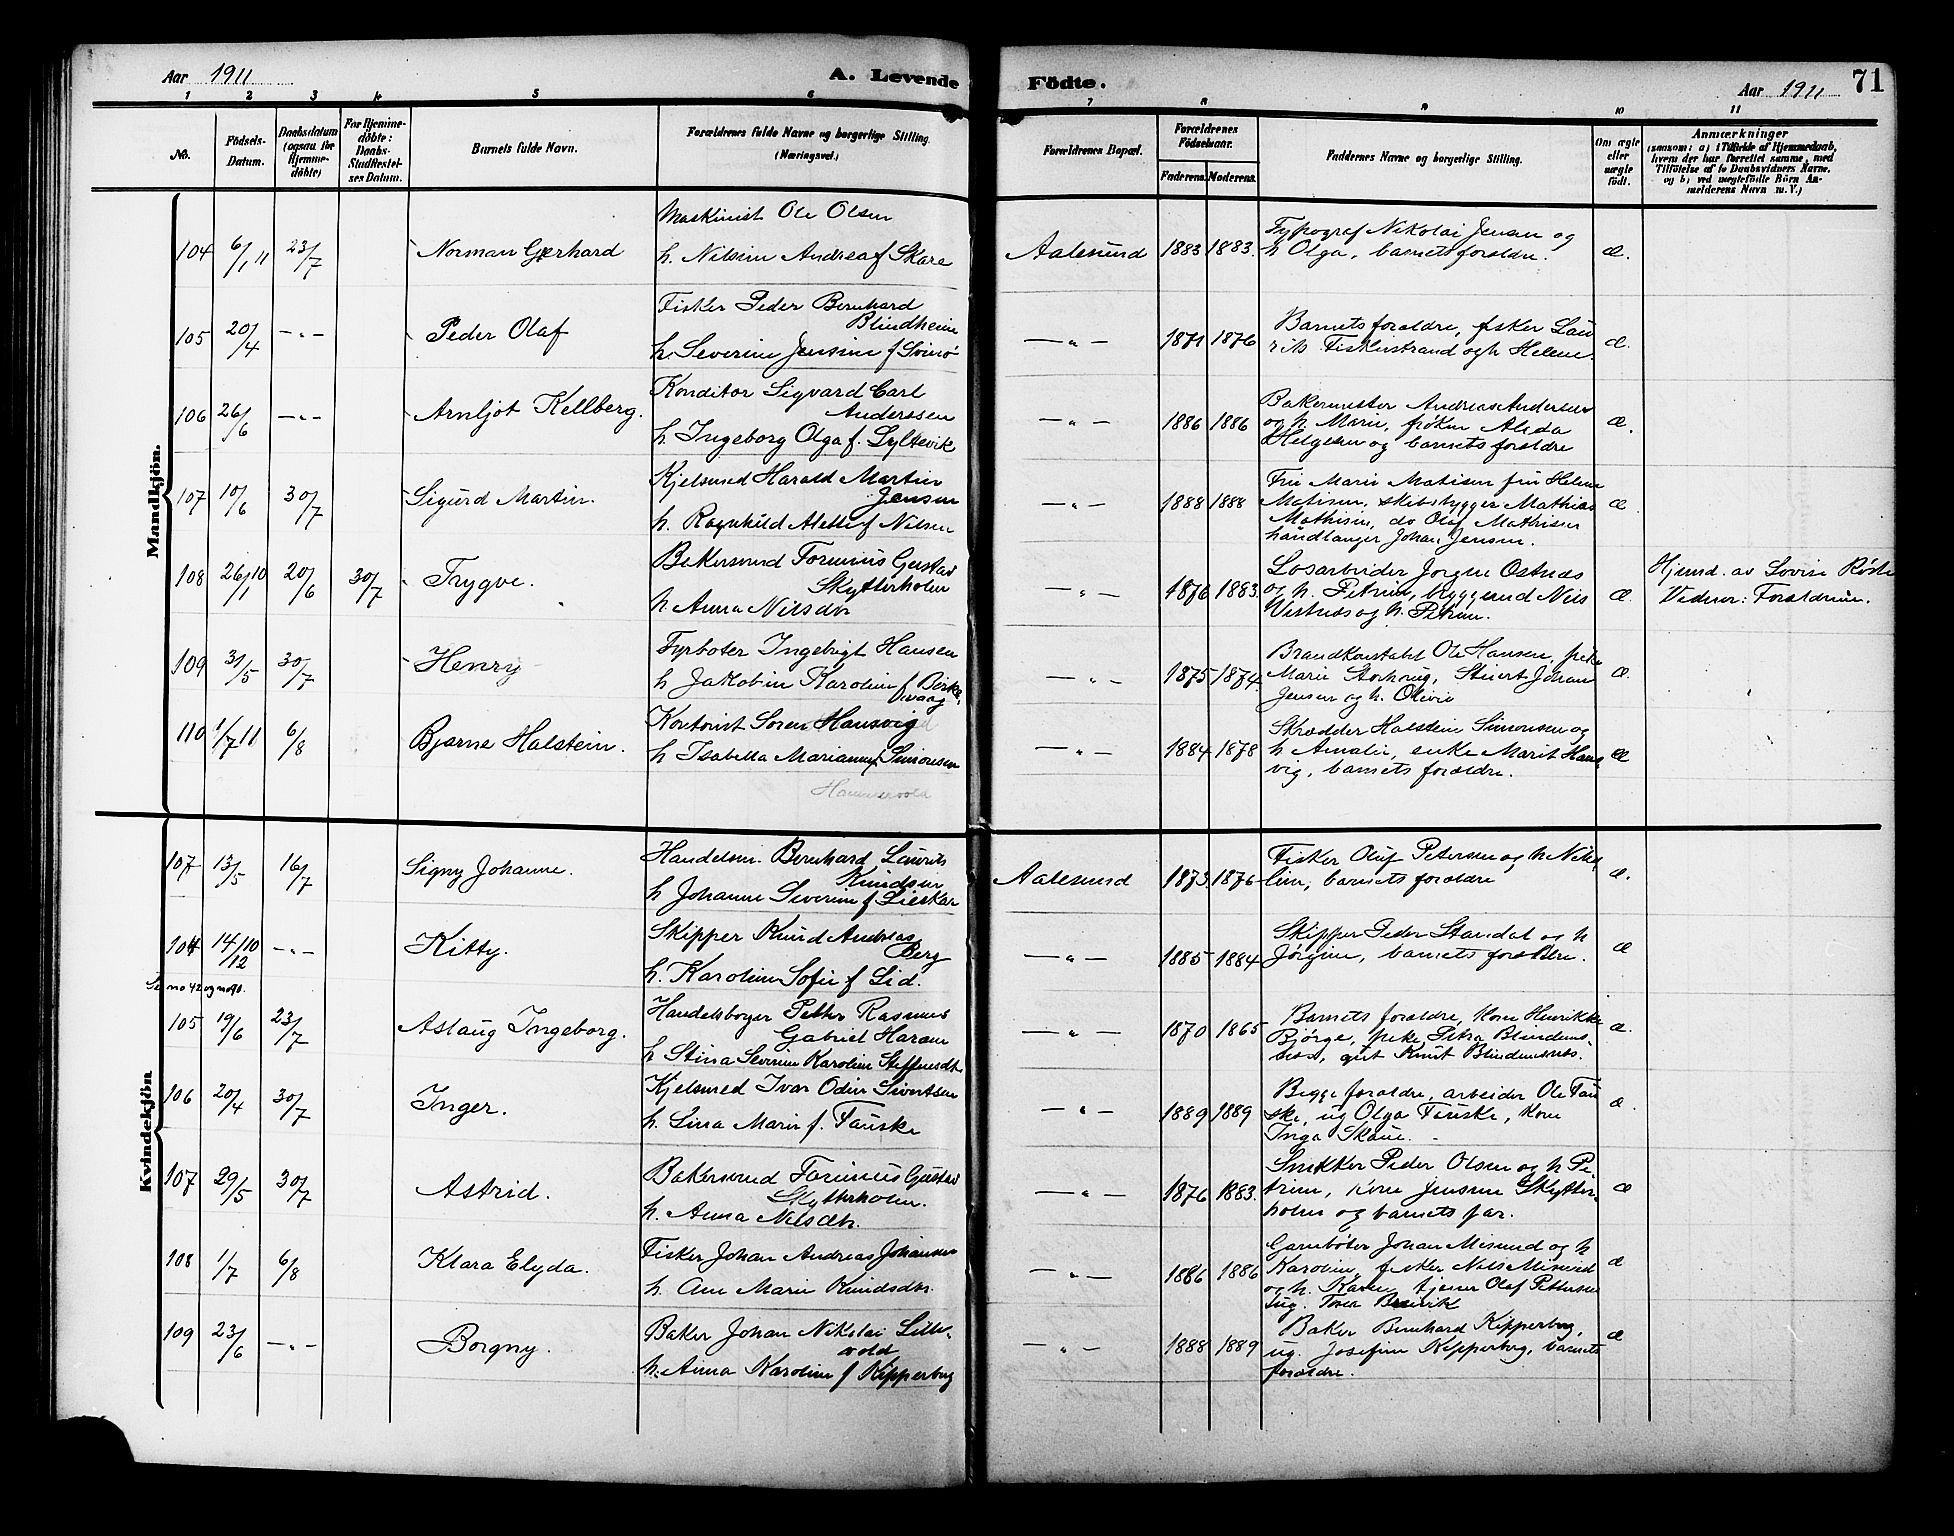 Aar 1911 A. Levende
Födte. Aar 1911 71
1 2 3 4 5 6
7 8 9 10 11
No.
Födsels-Datum.
Daabsdatum (ogsaa for Hjemmedöbte)
For Hjemmedöbte: Daabs-Stadfæstelses Datum.
Barnets fulde Navn.
Forældrenes fulde Navne og borgerlige Stilling.
(Næringsvei.)
Forældrenes Bopæl.
Forældrenes Födselsaar.
Faderens. Moderens.
Faddernes Navne og borgerlige Stilling.
Om ægte eller uægte födt.
Anmærkninger
(saasom: a) i Tilfælde af Hjemmedaab,
hvem der har forrettet samme, med
Tilföielse af to Daabsvidners Navne,
og b) ved uægtefödte Börn Anmelderens Navn m. V.)
Mandkjön.
104 6/1 11 23/7 Norman Gerhard
Maskinist Ole Olsen
h. Nilsine Andrea f Skare
Aalesund 1883 1883.
Typograf Nikolai Jensen og
h Olga, barnets foraldre.
æ.
105 20/4 -"- Peder Olaf
Fisker Peder Bernhard
Blindheim
h. Severine Jensine f Svinö
-"- 1871 1876
Barnets foraldre, fisker Lau
rits Fiskerstrand og h Helene.
æ.
106 26/6 -"- Arnljot Kellberg.
Konditor Sigvard Carl
Anderssen
h. Ingeborg Olga f. Syltevik
-"- 1886 1886
Bakermester Andreas Andersen
og h. Marie, frøken Alida
Helgesen og barnets foraldre
æ.
107 10/6 30/7 Sigurd Martin.
Kjelsmed Harald Martin
Jensen
h. Ragnhild Alette f Nilsen
-"- 1888 1888
Fru Marie Matisen fru Helene
Matisen, skibsbygger Mathias
Mathisen, do Olaf Mathisen
haandlanger Johan Jensen.
æ
108 26/1 10 20/6 30/7 Trygve.
Bakersvend Forinius Gustav
Skytterholm
h Anna Nilsdtr
-"- 1876 1883.
Løsarbeider Jørgen Ostnes
og h. Petrine, byggmd Nils
Vestnes og h. Petrine.
æ.
Hjemd. av Lovise Röste
Vidner: Foraldrene.
109 31/5 30/7 Henry
Fyrböter Ingebrigt Hansen
h Jakobine Karoline f Birke
vaag
-"- 1875 1874.
Brandkonstabel Ole Hansen, pike
Marie Storhaug, Stuert Johan
Jensen og h. Olivie
æ
110 1/7 11 6/8 Bjarne Halstein.
Kontorist Søren Hansvig
h Isabella Marianne f Simonsen
Hammervold
-"- 1884 1878
Skrædder Halstein Simonsen og
h Amalie, enke Marit Hans
vig, barnets foraldre.
æ
Kvindekjön
107 13/5 16/7 Signy Johanne.
Handelsm. Bernhard Laurits
Knudsen
h Johanne Severine f Lieskar
Aalesund 1873 1876
Fisker Oluf Petersen og h Niko
line, barnets foraldre
æ.
104 14/12 10 -"- Kitty.
Skipper Knud Andreas
Berg
h. Karoline Sofie f Lid.
-"- 1885 1884
Skipper Peder Standal og h
Jørgine, barnets foraldre.
æ
Se no 42 og no 90.
105 19/6 23/7 Aslaug Ingeborg.
Handelsborger Petter Rasmus
Gabriel Haram
h Stina Severine Karoline Steffensdtr
-"- 1870 1865
Barnets foraldre, Kone Henrikke
Bjørge, pike Petra Blindems
nes, gut Knut Blindemsnes.
æ.
106 20/4 30/7 Inger.
Kjelsmed Ivar Odin Sivertsen
h. Lina Marie f. Fauske
-"- 1889 1889
Begge foraldre, arbeider Ole Fau
ske, ug Olga Fauske, Kone
Inga Skaue.
æ
107 29/5 30/7 Astrid.
Bakersvend Forinius Gustav
Skytterholm.
h. Anna Nilsdtr.
-"- 1876 1883.
Snekker Peder Olsen og h Pe
trine, Kone Jensine Skytter
holm og barnets far.
æ
108 1/7 6/8 Klara Elyda.
Fisker Johan Andreas Johansen
h. Ane Marie Knudsdtr.
-"- 1886 1886
Garnbøter Johan Misund og h
Karoline, fisker Nils Misund
og h. Karen, tjener Olaf Pettersen
ug. Tora Breivik
æ
109 23/6 -"- Borgny.
Baker Johan Nikolai Lille
vold
h. Anna Karoline f Kipperberg
-"- 1888 1889
Baker Bernhard Kipperberg,
ug. Josefine Kipperberg, barnets
foraldre.
æ